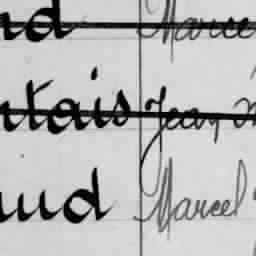 nd Marce
ntais Jean
aud Marcel